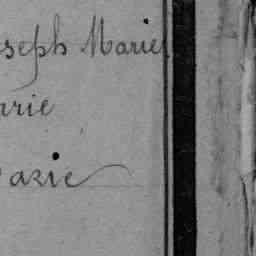 oseph Marie
rrie
azie